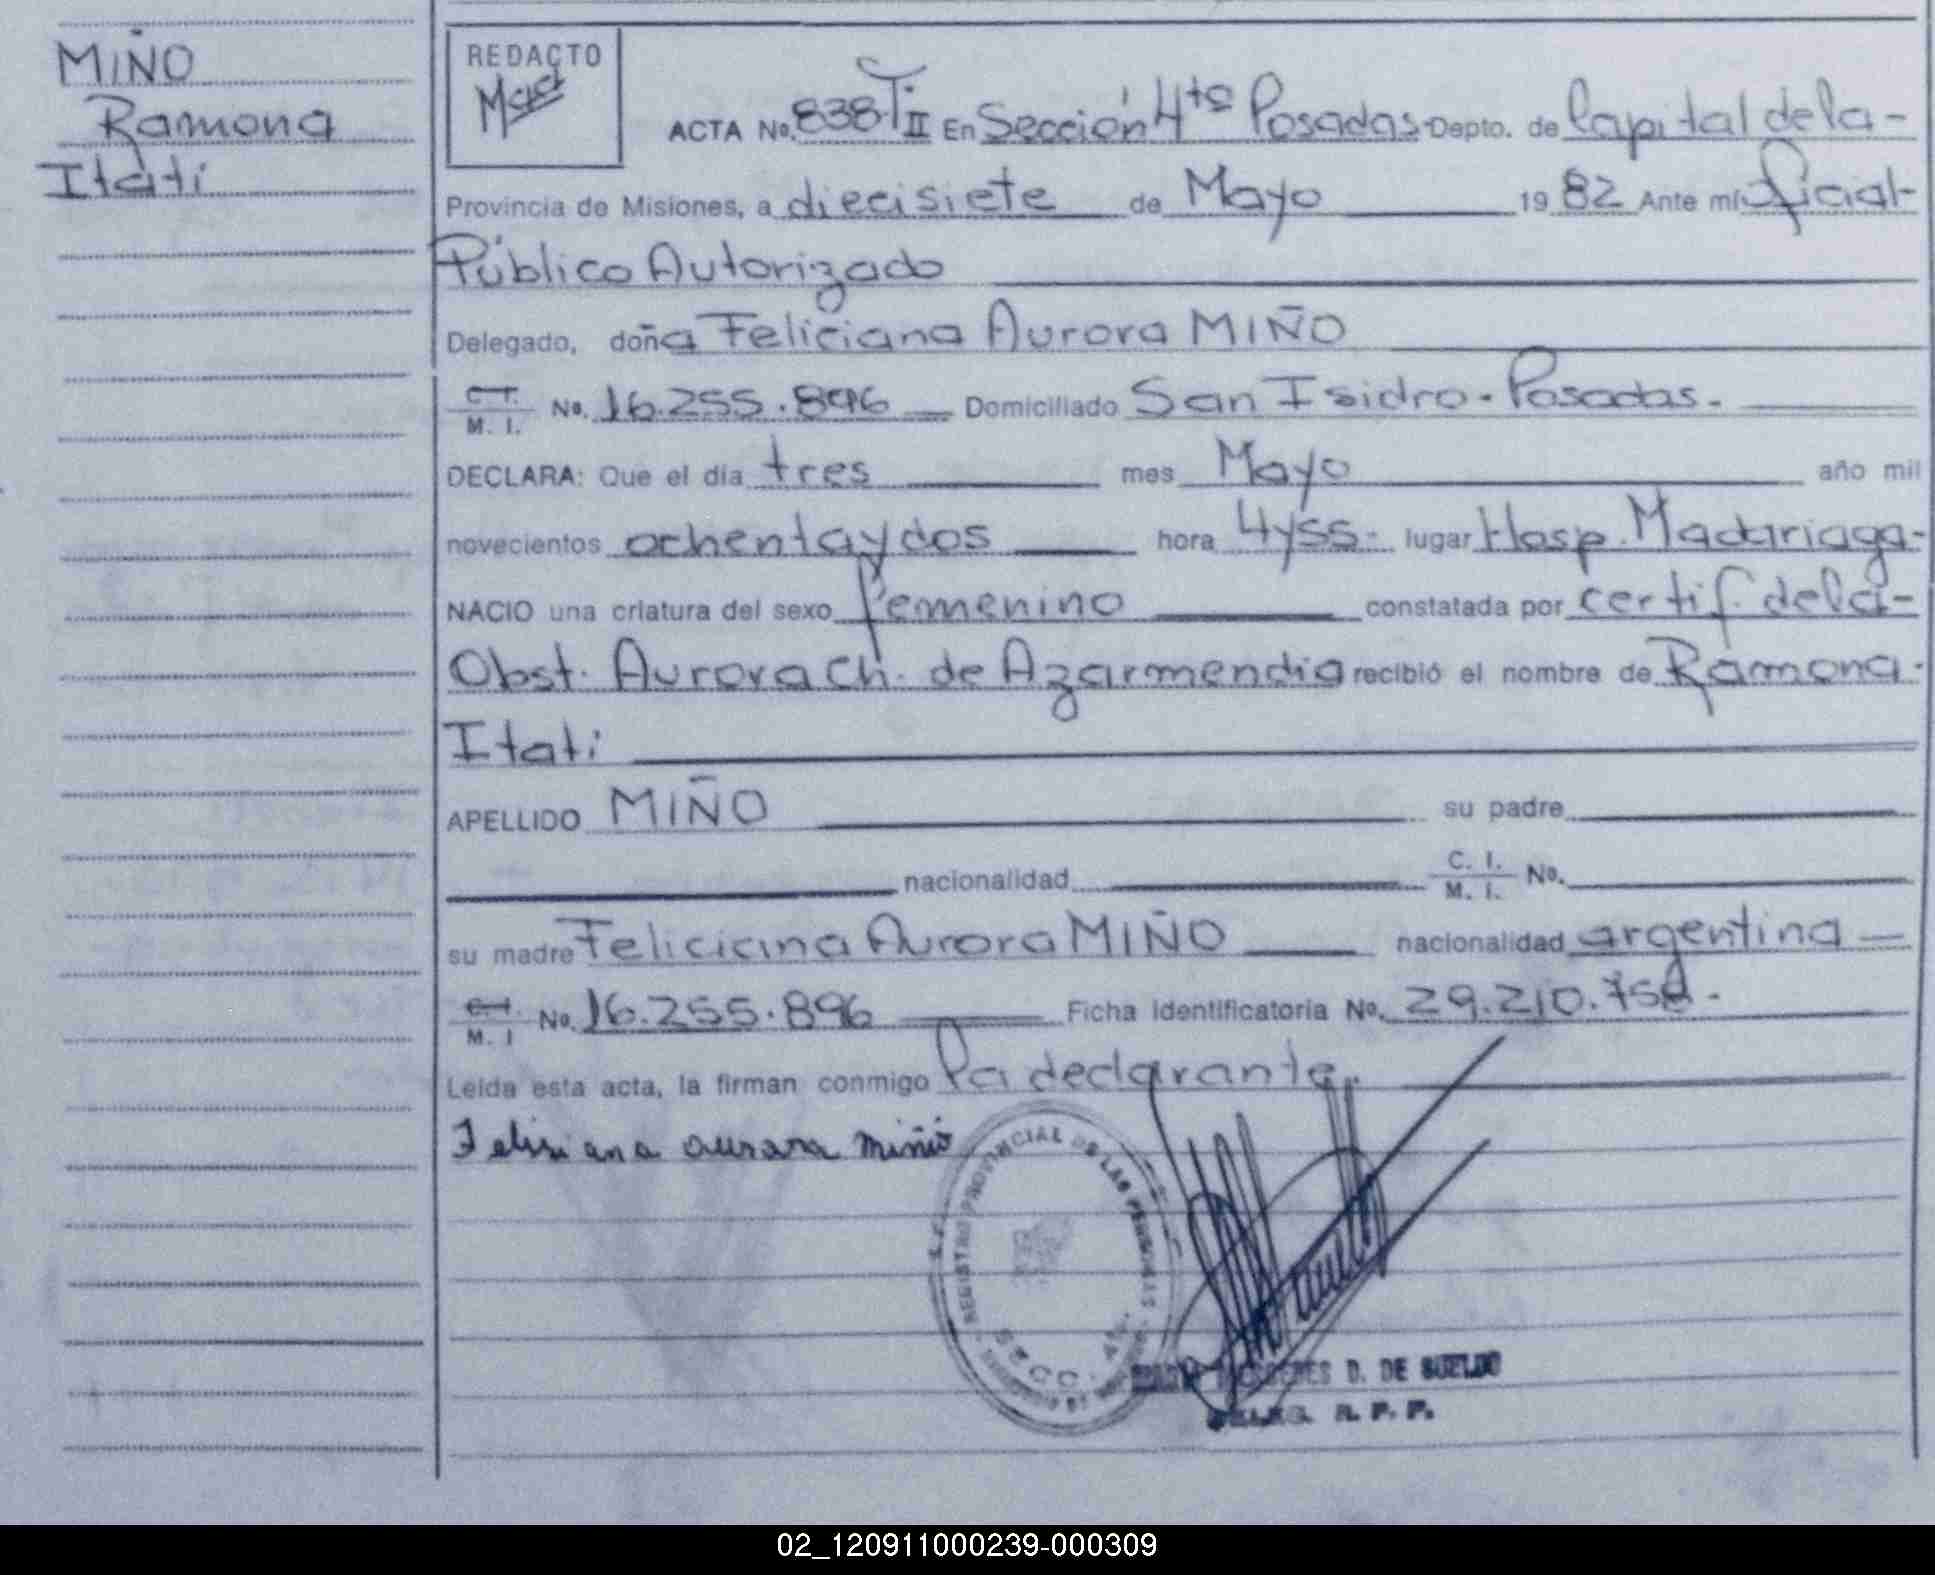 MIÑO
Ramona
Itatí
REDACTO
ACTA No. 838 T II En Sección 4ta Posadas Depto. de Capital de la-
Provincia de Misiones, a diecisiete de Mayo 1982 Ante mí Oficial-
Público Autorizado
Delegado, doña Feliciana Aurora MIÑO
C. I. / M. I. No. 16.255.896 Domiciliado San Isidro - Posadas.
DECLARA: Que el día tres mes Mayo año mil
novecientos ochenta y dos hora 4 y 55 - lugar Hosp. Madariaga-
NACIO una criatura del sexo femenino constatada por certif. de la-
Obst. Aurora Ch. de Azarmendia recibió el nombre de Ramona-
Itatí
APELLIDO MIÑO su padre
nacionalidad C. I. / M. I. No.
su madre Feliciana Aurora MIÑO nacionalidad argentina
C. I. / M. I No. 16.255.896 Ficha identificatoria No. 29.210.758.
Leída esta acta, la firman conmigo la declarante.
Felisiana aurora miño
REGISTRO PROVINCIAL DE LAS PERSONAS
SECC. 4ta.
D. DE SUELDO
DELEG. R. P. P.
02_120911000239-000309